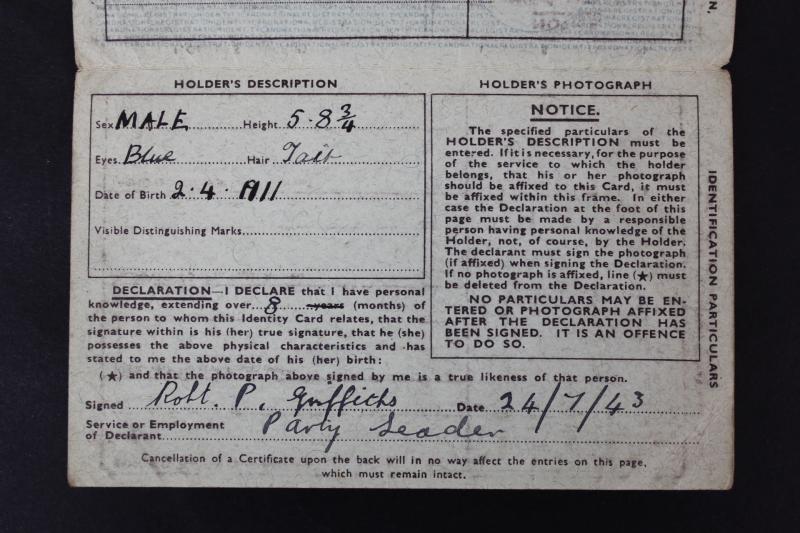 HOLDER'S DESCRIPTION
Sex MALE Height 5.8 3/4
Eyes Blue Hair
Date of Birth 2.4.1911
Visible Distinguishing Marks
DECLARATION—I DECLARE that I have personal
knowledge, extending over 8 years (months) of
the person to whom this Identity Card relates, that the
signature within is his (her) true signature, that he (she)
possesses the above physical characteristics and has
stated to me the above date of his (her) birth:
(★) and that the photograph above signed by me is a true likeness of that person.
Signed Robt. P. Griffiths Date 24/7/43
Service or Employment
of Declarant Party Leader
Cancellation of a Certificate upon the back will in no way affect the entries on this page,
which must remain intact.
HOLDER'S PHOTOGRAPH
NOTICE.
The specified particulars of the
HOLDER'S DESCRIPTION must be
entered. If it is necessary, for the purpose
of the service to which the holder
belongs, that his or her photograph
should be affixed to this Card, it must
be affixed within this frame. In either
case the Declaration at the foot of this
page must be made by a responsible
person having personal knowledge of the
Holder, not, of course, by the Holder.
The declarant must sign the photograph
(if affixed) when signing the Declaration.
If no photograph is affixed, line (★) must
be deleted from the Declaration.
NO PARTICULARS MAY BE EN-
TERED OR PHOTOGRAPH AFFIXED
AFTER THE DECLARATION HAS
BEEN SIGNED. IT IS AN OFFENCE
TO DO SO.
IDENTIFICATION PARTICULARS